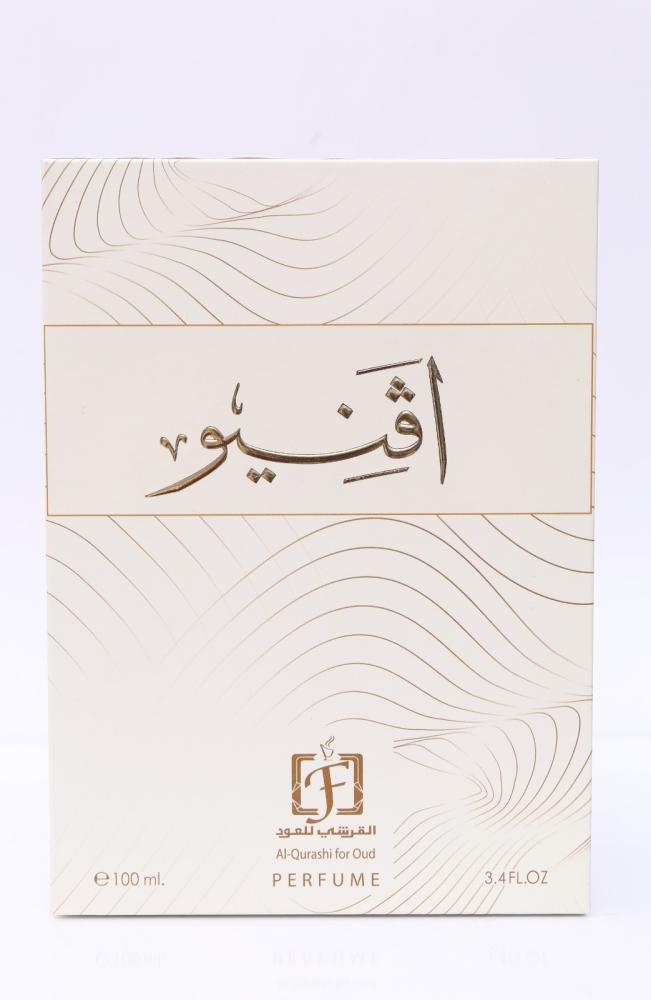 اڤنيو
F
القرشي للعود
Al-Qurashi for Oud
℮100 ml.
PERFUME
3.4FL.OZ